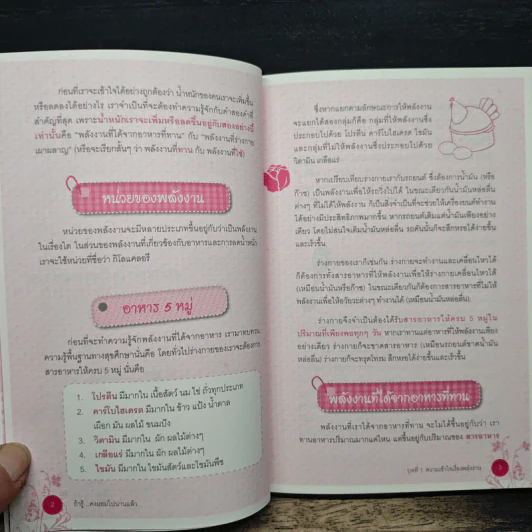 ก่อนที่เราจะเข้าใจได้อย่างถูกต้องว่า น้ำหนักของคนเราจะเพิ่มขึ้น
หรือลดลงได้อย่างไร เราจำเป็นที่จะต้องทำความรู้จักกับคำสองคำที่
สำคัญที่สุด เพราะน้ำหนักเราจะเพิ่มหรือลดขึ้นอยู่กับสองอย่างนี้
เท่านั้นคือ "พลังงานที่ได้จากอาหารที่ทาน" กับ "พลังงานที่ร่างกาย
เผาผลาญ" (หรือจะเรียกสั้นๆ ว่า พลังงานที่ทาน กับ พลังงานที่ใช้)
หน่วยของพลังงาน
หน่วยของพลังงานจะมีหลายประเภทขึ้นอยู่กับว่าเป็นพลังงาน
ในเรื่องใด ในส่วนของพลังงานที่เกี่ยวข้องกับอาหารและการลดน้ำหนัก
เราจะใช้หน่วยที่ชื่อว่า กิโลแคลอรี่
อาหาร 5 หมู่
ก่อนที่จะทำความรู้จักพลังงานที่ได้จากอาหาร เรามาทบทวน
ความรู้พื้นฐานทางสุขศึกษากันคือ โดยทั่วไปร่างกายของเราจะต้องการ
สารอาหารให้ครบ 5 หมู่ นั่นคือ
1. โปรตีน มีมากใน เนื้อสัตว์ นม ไข่ ถั่วทุกประเภท
2. คาร์โบไฮเดรต มีมากใน ข้าว แป้ง น้ำตาล
เผือก มัน ผลไม้ ขนมปัง
3. วิตามิน มีมากใน ผัก ผลไม้ต่างๆ
4. เกลือแร่ มีมากใน ผักผลไม้ต่างๆ
5. ไขมัน มีมากใน ไขมันสัตว์และไขมันพืช
2 ถ้ารู้...คงผอมไปนานแล้ว
ซึ่งหากแยกตามลักษณะการให้พลังงาน
จะแยกได้สองกลุ่มคือ กลุ่มที่ให้พลังงานซึ่ง
ประกอบไปด้วย โปรตีน คาร์โบไฮเดรต ไขมัน
และกลุ่มที่ไม่ให้พลังงานซึ่งประกอบไปด้วย
วิตามิน เกลือแร่
หากเปรียบเทียบร่างกายเรากับรถยนต์ ซึ่งต้องการน้ำมัน (หรือ
ก๊าซ) เป็นพลังงานเพื่อให้รถวิ่งไปได้ ในขณะเดียวกันน้ำมันหล่อลื่น
ต่างๆ ที่ไม่ได้ให้พลังงาน ก็เป็นสิ่งจำเป็นที่จะช่วยให้เครื่องยนต์ทำงาน
ได้อย่างมีประสิทธิภาพมากขึ้น หากรถยนต์เติมแต่น้ำมันเพียงอย่าง
เดียว โดยไม่สนใจเติมน้ำมันหล่อลื่น รถคันนั้นก็จะสึกหรอได้ง่ายขึ้น
และเร็วขึ้น
ร่างกายของเราก็เช่นกัน ร่างกายจะทำงานและเคลื่อนไหวได้
ก็ต้องการทั้งสารอาหารที่ให้พลังงานเพื่อให้ร่างกายเคลื่อนไหวได้
(เหมือนน้ำมันหรือก๊าซ) ในขณะเดียวกันก็ต้องการสารอาหารที่ไม่ให้
พลังงานเพื่อให้อวัยวะต่างๆ ทำงานได้ (เหมือนน้ำมันหล่อลื่น)
ร่างกายจึงจำเป็นต้องได้รับสารอาหารให้ครบ 5 หมู่ใน
ปริมาณที่เพียงพอทุกๆ วัน หากเราทานแต่อาหารที่ให้พลังงานเพียง
อย่างเดียว ร่างกายก็จะขาดสารอาหาร (เหมือนรถยนต์ขาดน้ำมัน
หล่อลื่น) ร่างกายก็จะทรุดโทรม สึกหรอได้ง่ายขึ้นและเร็วขึ้น
พลังงานที่ได้จากอาหารที่ทาน
พลังงานที่เราได้จากอาหาร จะไม่ได้ขึ้นอยู่กับว่า เรา
ทานอาหารปริมาณมากแค่ไหน แต่ขึ้นอยู่กับปริมาณของ สารอาหาร
บทที่ 1 ความเข้าใจเรื่องพลังงาน 3